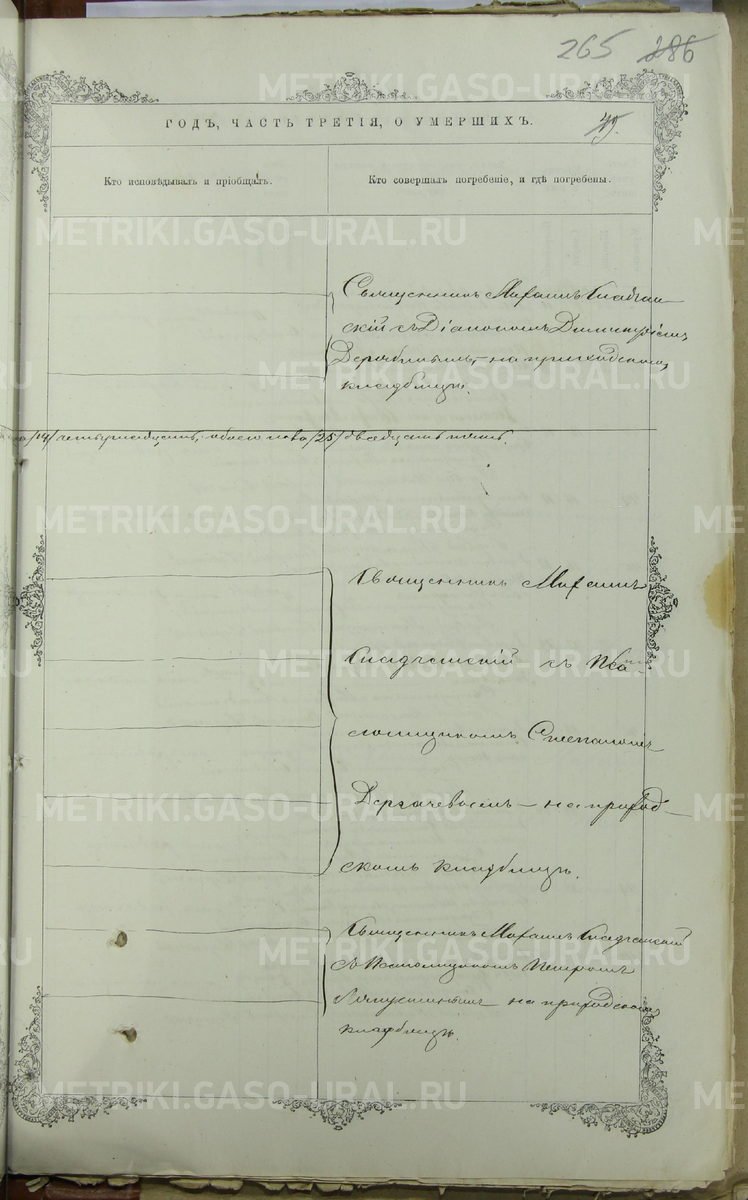 265 286
ГОДЪ, ЧАСТЬ ТРЕТІЯ, О УМЕРШИХЪ.
Кто исповѣдывалъ и пріобщалъ.
Кто совершалъ погребеніе, и гдѣ погребены.
METRIKI.GASO-URAL.RU
Священникъ Михаилъ
скій съ Діакономъ Димитріемъ
на приходскомъ
кладбищѣ.
/14/ четырнадцать, обоего пола /25/ двадцать пять.
Священникъ Михаилъ
съ Пса
ломщикомъ Стефаномъ
Дергачевымъ – на приход
скомъ кладбищѣ.
Священникъ Михаилъ
съ Псаломщикомъ Петромъ
на приходскомъ
кладбищѣ.